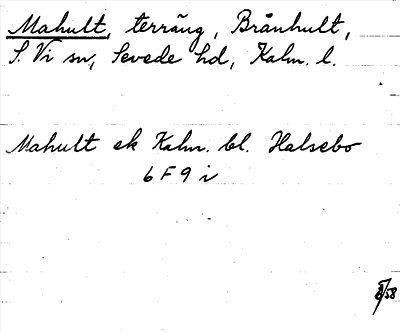 Mahult, terräng, Brånhult,
S. Vi sn, Sevede hd, Kalm. l.
Mahult ek Kalm. bl. Halsebo
6 F 9 i